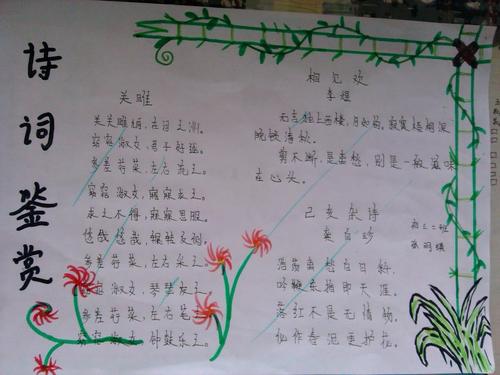 诗词鉴赏
关雎
关关雎鸠,在河之洲。
窈窕淑女,君子好逑。
参差荇菜,左右流之。
窈窕淑女,寤寐求之。
求之不得,寤寐思服。
悠哉悠哉,辗转反侧。
参差荇菜,左右采之。
窈窕淑女,琴瑟友之。
参差荇菜,左右芼之。
窈窕淑女,钟鼓乐之。
相见欢
李煜
无言独上西楼,月如钩,寂寞梧桐深
院锁清秋。
剪不断,是离愁,别是一般滋味
在心头。
己亥杂诗
龚自珍
浩荡离愁白日斜,
吟鞭东指即天涯。
落红不是无情物,
化作春泥更护花。
初二二班